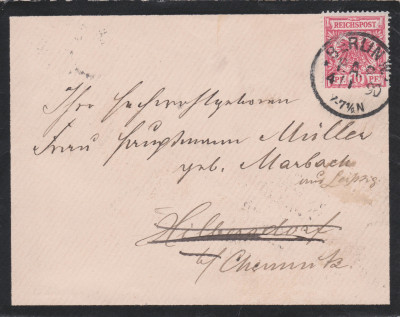 REICHSPOST
10
PF
BERLIN
6-7½N
Ihro Hochwohlgeboren
Frau Hauptmann Müller
geb. Marbach
aus Leipzig
Hilbersdorf
b/ Chemnitz.